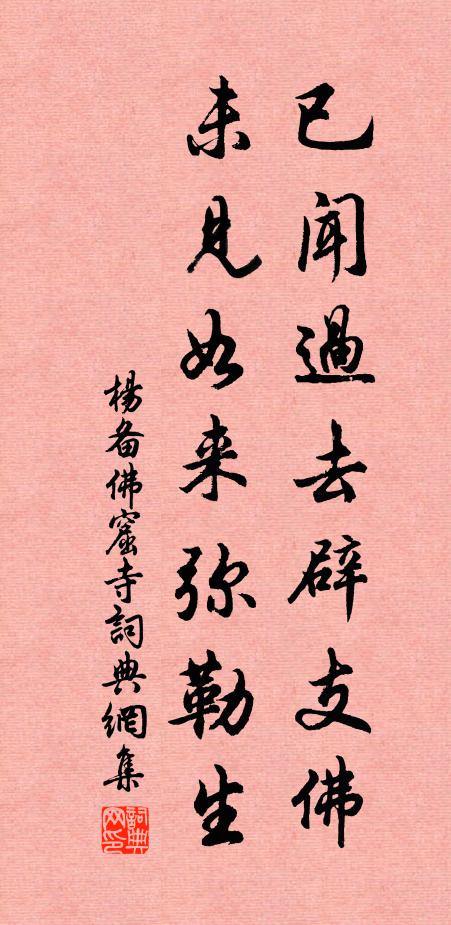 已闻過去辟支佛
未見如来弥勒生
楊备佛窟寺詞典網集
詞典网印